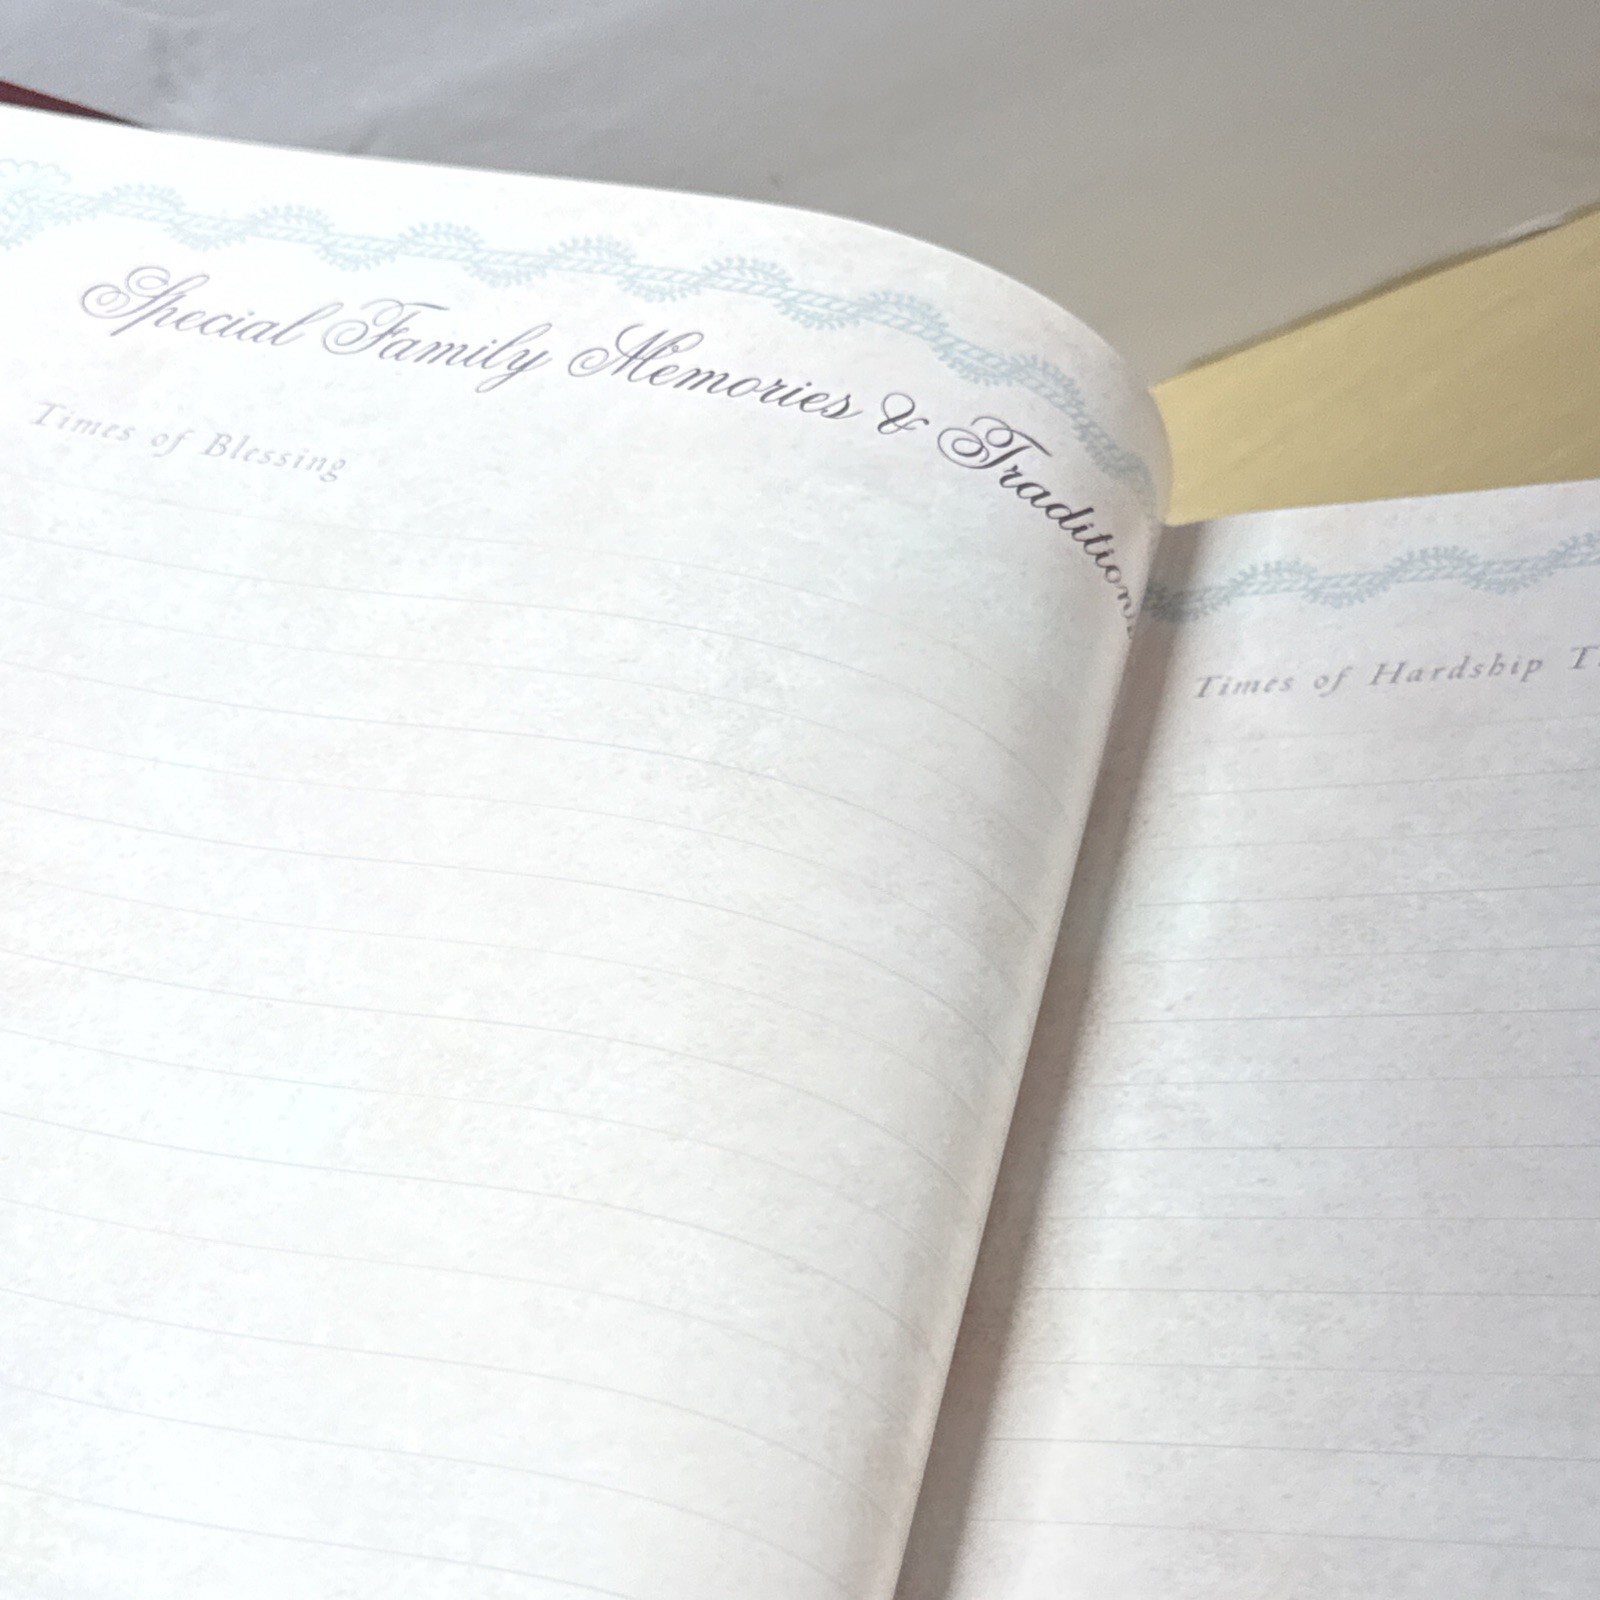 Special Family Memories & Traditions
Times of Blessing
Times of Hardship